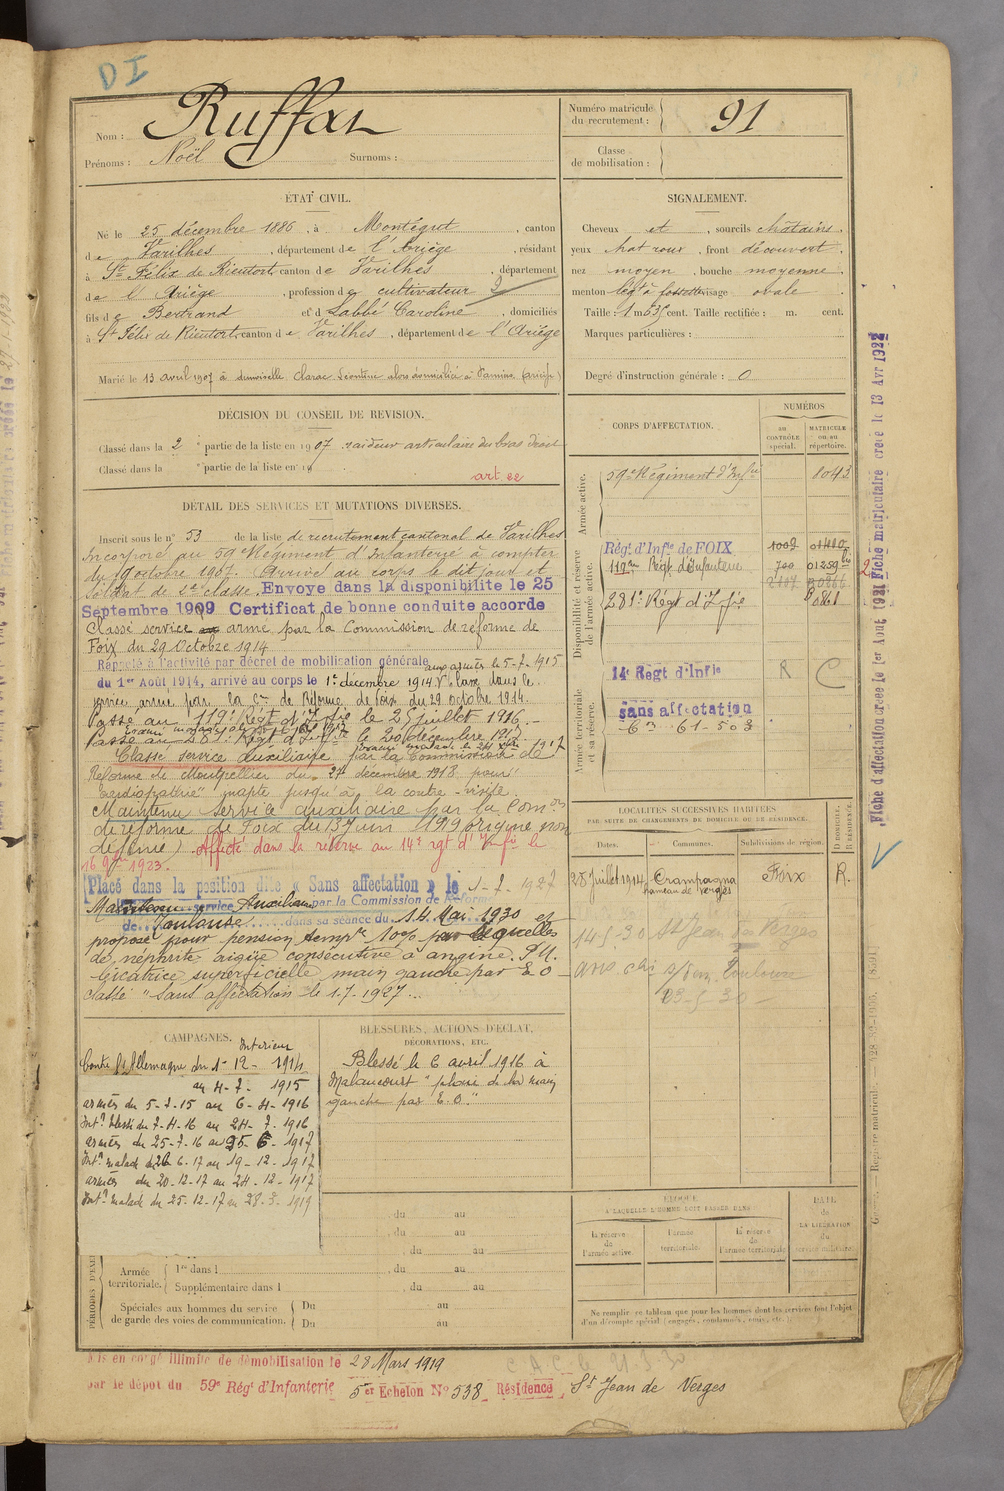 DI
Nom : Ruffat
Prénoms : Noël Surnoms :
Numéro matricule du recrutement : 91
Classe de mobilisation :
ÉTAT CIVIL.
Né le 25 décembre 1886, à Montégut, canton
de Varilhes, département de l'Ariège, résidant
à St Félix de Rieutort, canton de Varilhes, département
de l'Ariège, profession de cultivateur
fils de Bertrand et d Labbé Caroline, domiciliés
à St Félix de Rieutort, canton de Varilhes, département de l'Ariège
Marié le 13 avril 1907 à demoiselle Clarac Léontine alors domiciliée à
SIGNALEMENT.
Cheveux et, sourcils châtains,
yeux chat roux, front découvert,
nez moyen, bouche moyenne,
menton à fossette, visage ovale
Taille : 1 m 535 cent. Taille rectifiée : m. cent.
Marques particulières :
Degré d'instruction générale : 0
DÉCISION DU CONSEIL DE REVISION.
Classé dans la 2e partie de la liste en 1907 raideur articulaire du bras droit
Classé dans la e partie de la liste en 19
art 22
CORPS D'AFFECTATION.
NUMÉROS
AU CONTRÔLE spécial.
MATRICULE ou au répertoire.
Armée active.
59e Régiment d'Infie 8043
Disponibilité et réserve de l'armée active.
Régt d'Infie de FOIX 1009 01410
119me Régt d'Infanterie 700 01259
281e Régt d'Infie
Armée territoriale et sa réserve.
14e Régt d'Infie R C
sans affectation
Con 61-503
DÉTAIL DES SERVICES ET MUTATIONS DIVERSES.
Inscrit sous le n° 53 de la liste de recrutement cantonal de Varilhes
Incorporé au 59e Régiment d'Infanterie à compter
du 9 octobre 1907. Arrivé au corps le dit jour et
soldat de 2e classe. Envoyé dans la disponibilité le 25
Septembre 1909 Certificat de bonne conduite accordé
Classé service armé par la Commission de réforme de
Foix du 29 Octobre 1914
Rappelé à l'activité par décret de mobilisation générale aux armées le 5-7-1915
du 1er Août 1914, arrivé au corps le 1er décembre 1914. Classé dans le
service armé par la Con de Réforme de Foix du 29 octobre 1914.
Passé au 119e Régt d'Infie le 25 juillet 1916.
Passé au 281e Régt d'Infie le 20 décembre 1917.
Classé service auxiliaire par la Commission de
Réforme de Montpellier du 27 décembre 1918 pour
"Cardiopathie" inapte jusqu'à la contre-visite.
Maintenu service auxiliaire par la Comon
de réforme de Foix du 13 Juin 1919 origine non
définie. Affecté dans la réserve au 14e rgt d'Infie le
16 9bre 1923.
Placé dans la position dite « Sans affectation » le 1-7-1927
Maintenu service Auxiliaire par la Commission de Réforme
de Toulouse dans sa séance du 14 Mai 1930 et
proposé pour pension tempre 10% séquelles
de néphrite aigüe consécutive à angine. P.M.
Cicatrice superficielle main gauche par E.O
classé "sans affectation le 1.7.1927"
LOCALITÉS SUCCESSIVES HABITÉES
PAR SUITE DE CHANGEMENTS DE DOMICILE OU DE RÉSIDENCE.
Dates. Communes. Subdivisions de région. D DOMICILE. R RÉSIDENCE.
28 Juillet 1914 Crampagna hameau de Verges Foix R.
14 5 30 St Jean de Verges
Toulouse
23-5-30
CAMPAGNES.
Intérieur
Contre l'Allemagne du 1er 12-1914
au 4-7-1915
armées du 5-7-15 au 6-4-1916
Intr blessé du 7-4-16 au 24-7-1916
armées du 25-7-16 au 25-6-1917
Intr malade du 26 6-17 au 19-12-1917
armées du 20-12-17 au 24-12-1917
Intr malade du 25-12-17 au 28-3-1919
BLESSURES, ACTIONS D'ÉCLAT, DÉCORATIONS, ETC.
Blessé le 6 avril 1916 à
Malancourt "plaie de la main
gauche par E.O."
du au
du au
du au
Armée territoriale. 1re dans l du au
Supplémentaire dans l du au
Spéciales aux hommes du service de garde des voies de communication. Du au
Du au
ÉPOQUE
À LAQUELLE L'HOMME DOIT PASSER DANS
la réserve de l'armée active.
l'armée territoriale.
la réserve de l'armée territoriale
DATE de LA LIBÉRATION du service militaire.
Ne remplir ce tableau que pour les hommes dont les services font l'objet d'un décompte spécial (engagés, condamnés, omis, etc.).
Mis en congé illimité de démobilisation le 28 Mars 1919
par le dépôt du 59e Régt d'Infanterie 5e Echelon N° 538 Résidence St Jean de Verges
Fiche d'affectation créée le 1er Août 1921 Fiche matriculaire créée le 13 Avr 1922